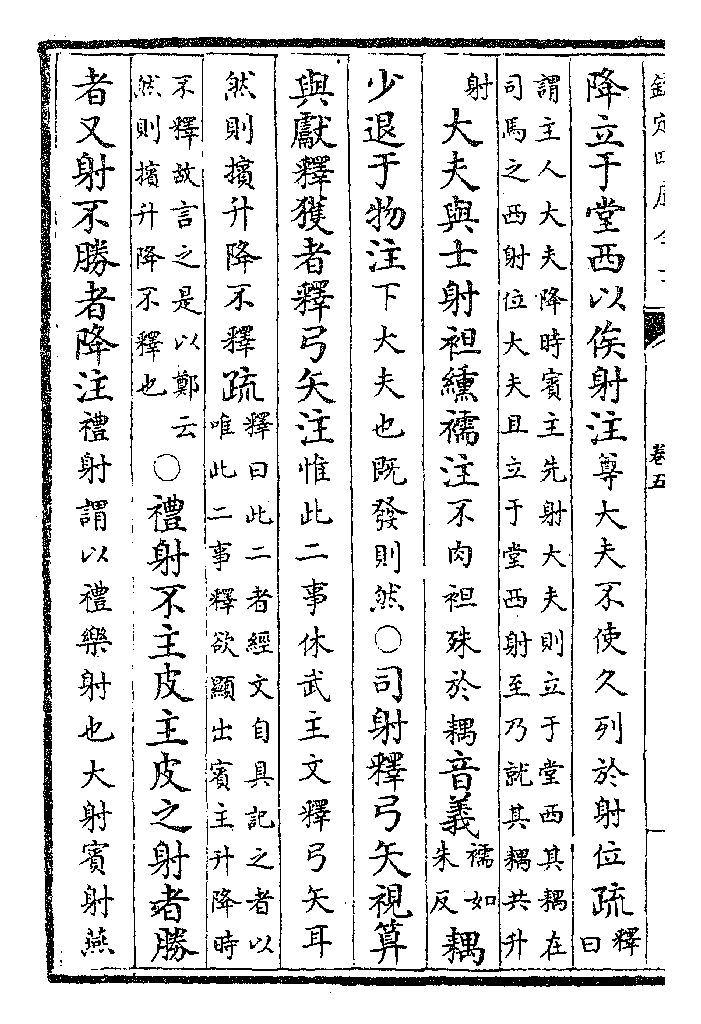 卷五
降立于堂西以俟射注尊大夫不使久列於射位疏釋曰
謂主人大夫降時賓主先射大夫則立于堂西其耦在
司馬之西射位大夫且立于堂西射至乃就其耦共升
射大夫與士射袒纁襦注不肉袒殊於耦音義襦如朱反耦
少退于物注下大夫也既發則然○司射釋弓矢視算
與獻釋獲者釋弓矢注惟此二事休武主文釋弓矢耳
然則擯升降不釋疏釋曰此二者經文自具記之者以
唯此二事釋欲顯出賓主升降時
不釋故言之是以鄭云
然則擯升降不釋也○禮射不主皮主皮之射者勝
者又射不勝者降注禮射謂以禮樂射也大射賓射燕